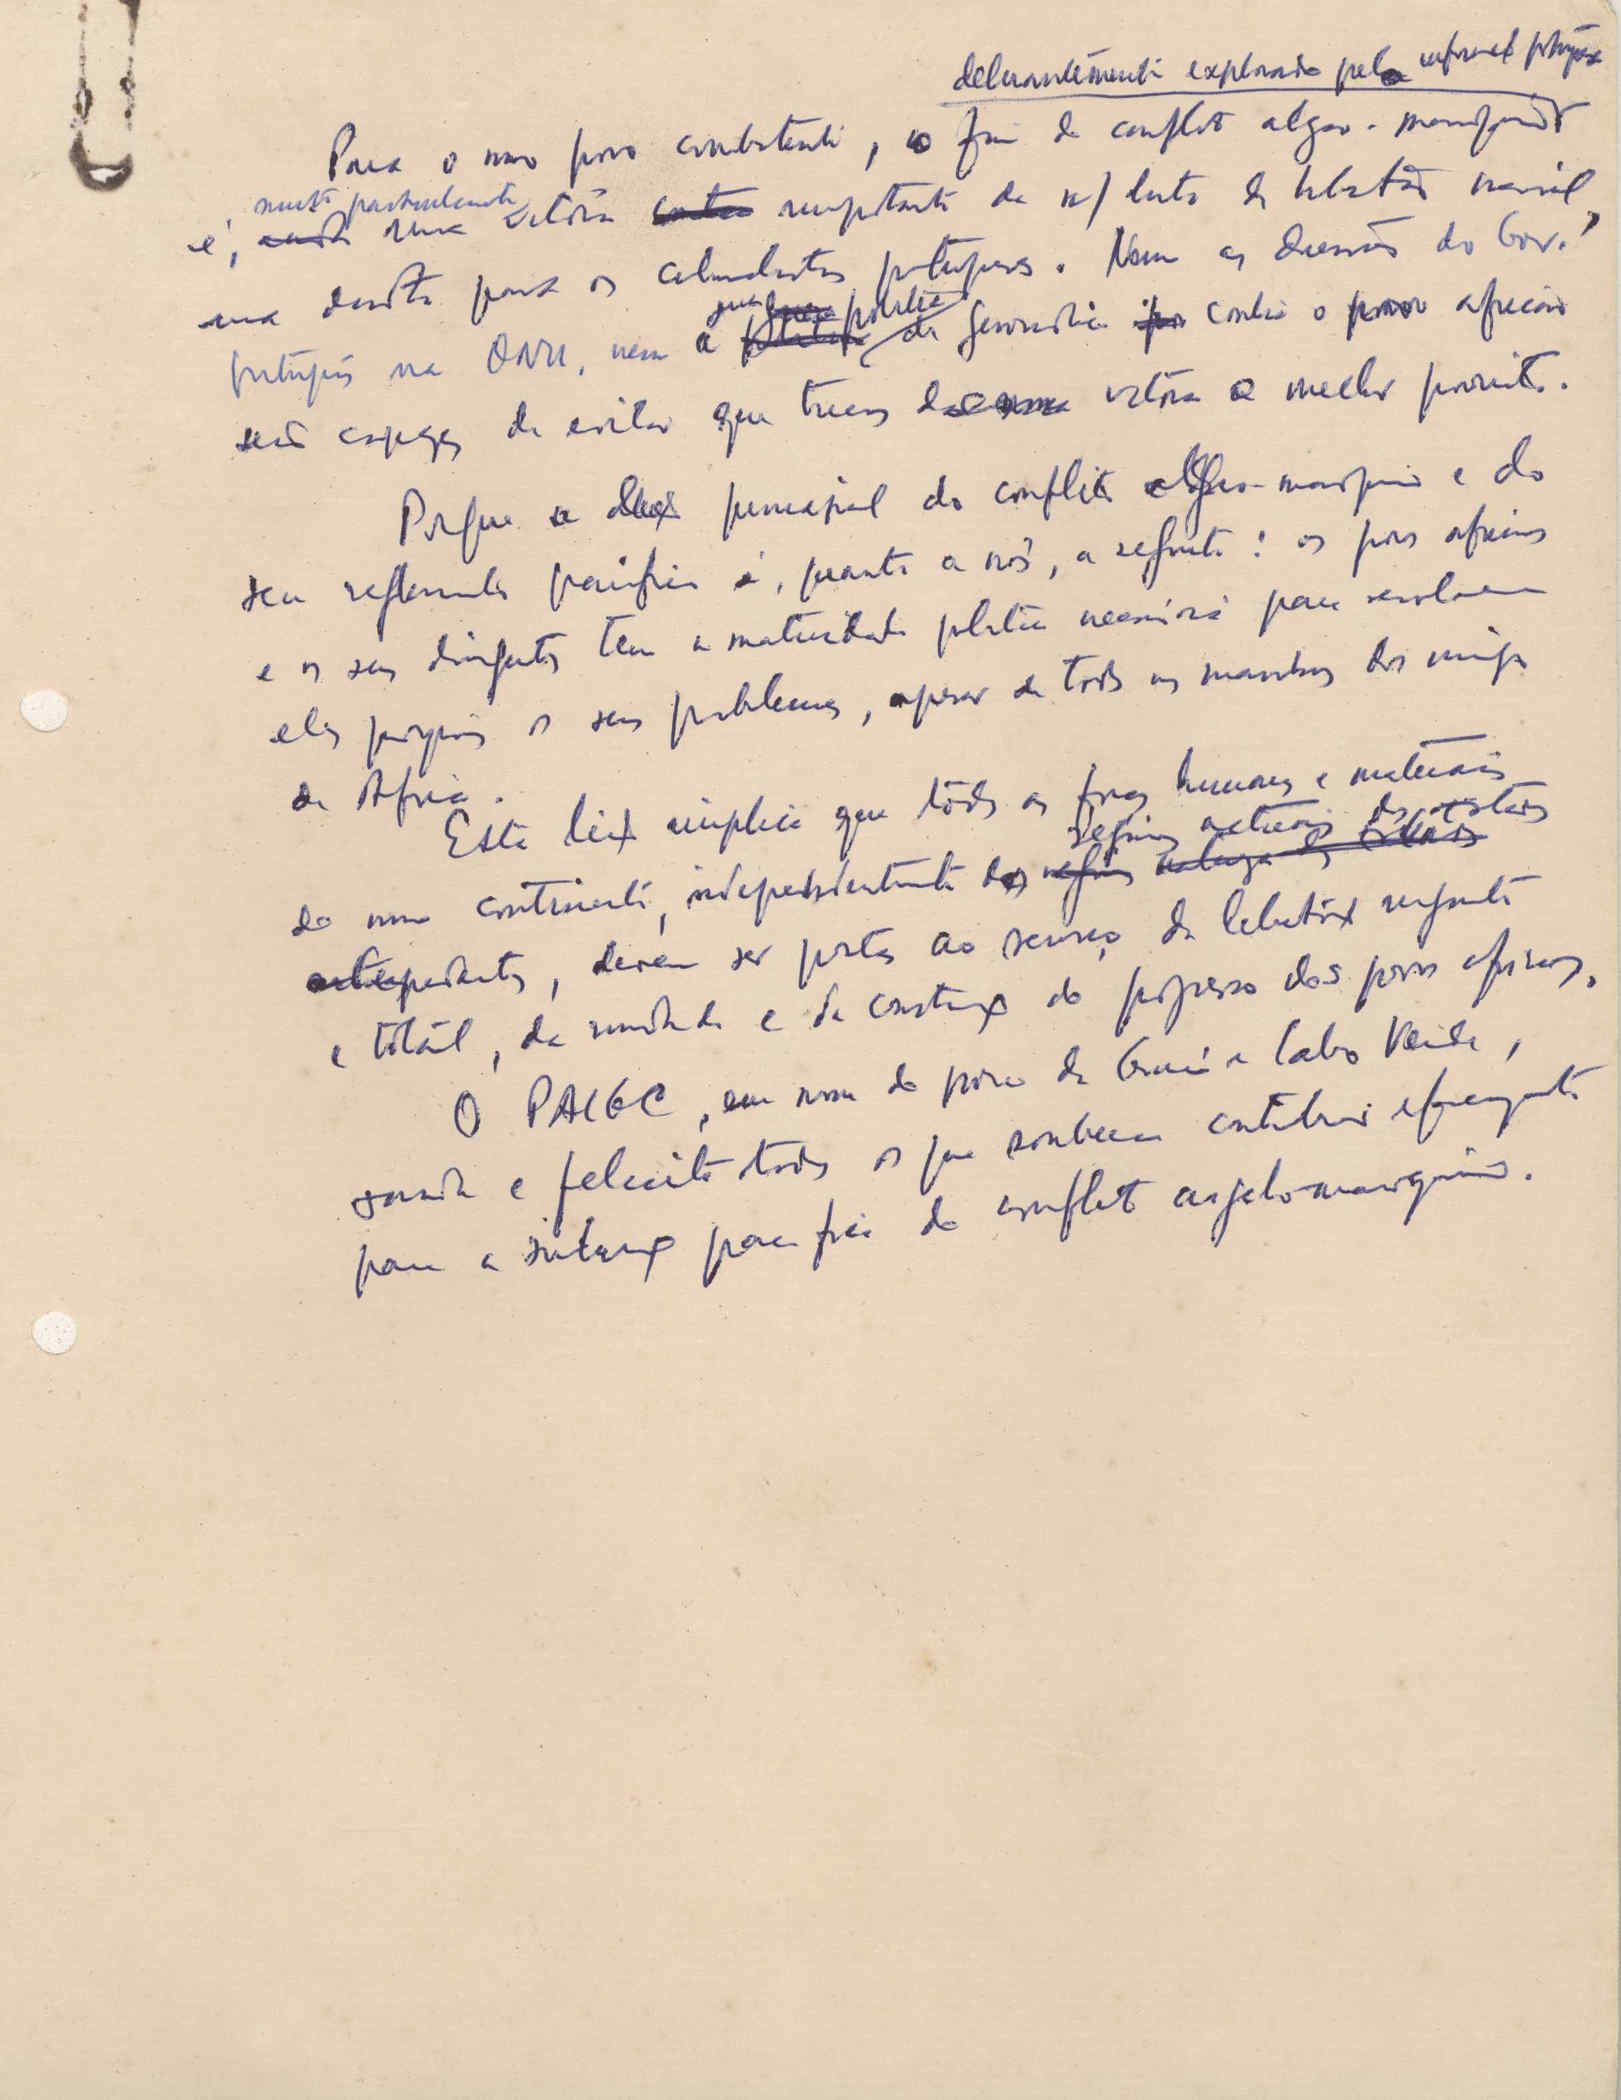 explorado pela
Para o nosso povo combatente, o fim do conflito algero-marroquino
é, muito particularmente uma vitória importante da n/ luta de libertação nacional,
para os colonialistas portugueses. Nem as do Gov.
português na ONU, nem a sua política de genocídio contra o povo africano
são capazes de evitar que vitória o melhor proveito.
Porque a lição principal do conflito algero-marroquino e do
seu pacífico é, quanto a nós, a seguinte: os povos africanos
e os seus dirigentes têm a maturidade política necessária para resolverem
eles próprios os seus problemas, apesar de todas as manobras dos inimigos
de África.
Esta lição implica que todas as forças humanas e materiais
do nosso continente, independentemente dos regimes actuais dos estados
devem ser postas ao serviço da libertação urgente
e total, da unidade e da construção do progresso dos povos africanos.
O PAIGC, em nome do povo da Guiné e Cabo Verde,
saúda e felicita todos os que souberam contribuir
para a solução pacífica do conflito argelo-marroquino.